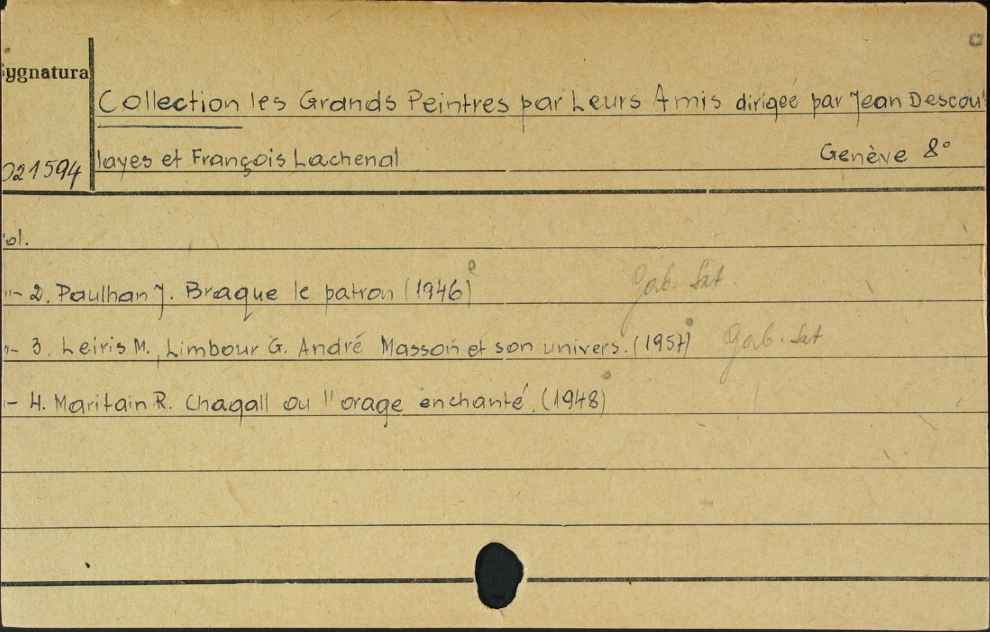 Sygnatura
Collection les Grands Peintres par Leurs Amis dirigée par Jean Descou
layes et François Lachenal Genève 8°
021594
ol.
"- 2. Paulhan J. Braque le patron (1946) Gab. Sat.
"- 3. Leiris M., Limbour G. André Masson et son univers. (1957) Gab. Sat
"- 4. Maritain R. Chagall ou l'orage enchanté. (1948)